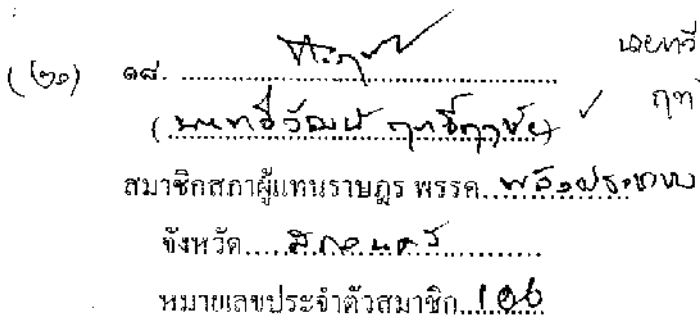 นายทวี
(๒๑) ๑๘. ฤท
(นายทวีวัฒน์ ฤทธิ์ฤาชัย)
สมาชิกสภาผู้แทนราษฎร พรรค พลังประชาชน
จังหวัด สกลนคร
หมายเลขประจำตัวสมาชิก 106